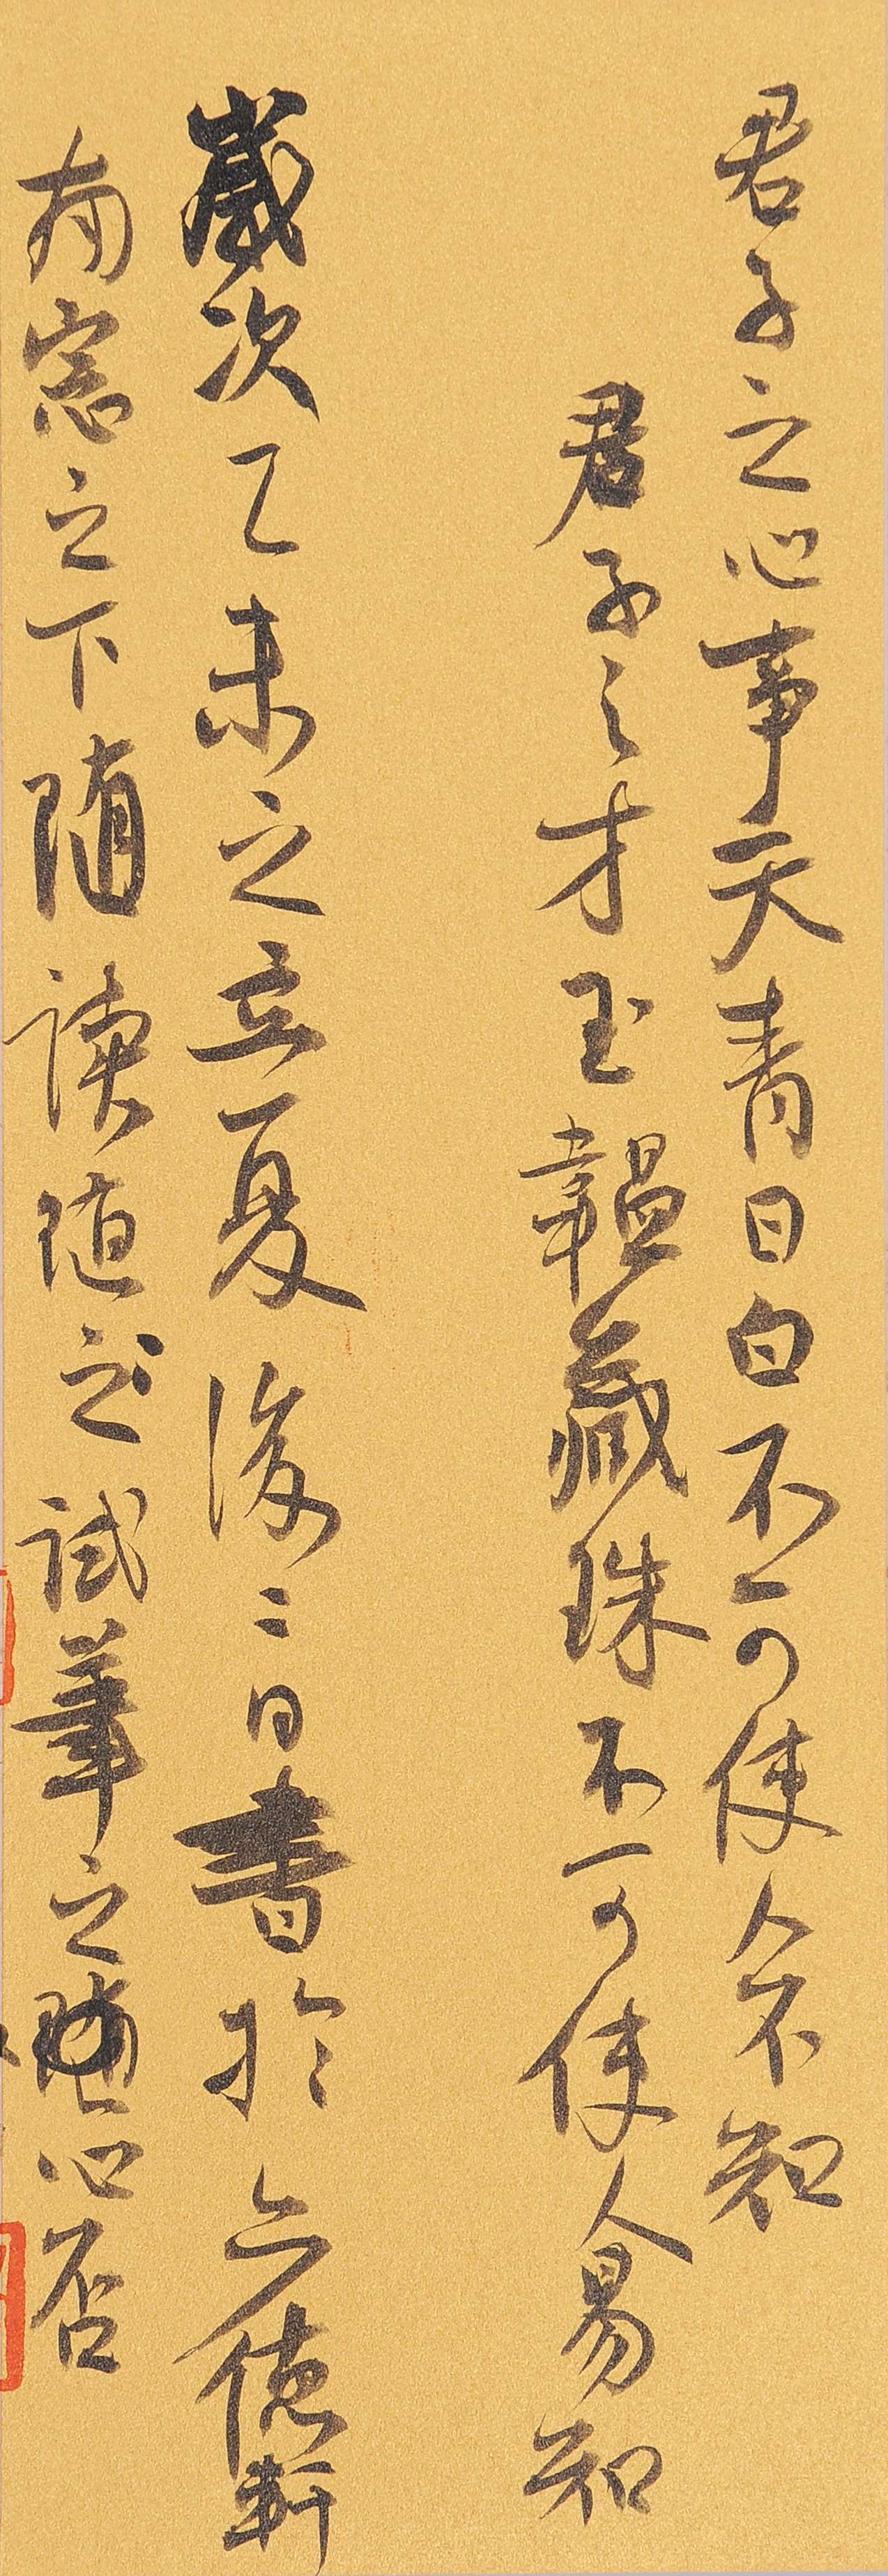 君子之心事天青日白不可使人不知
君子之才玉韞藏珠不可使人易知
歲次乙未之立夏後二日書於六德軒
南窓之下随读随书试筆之随心否